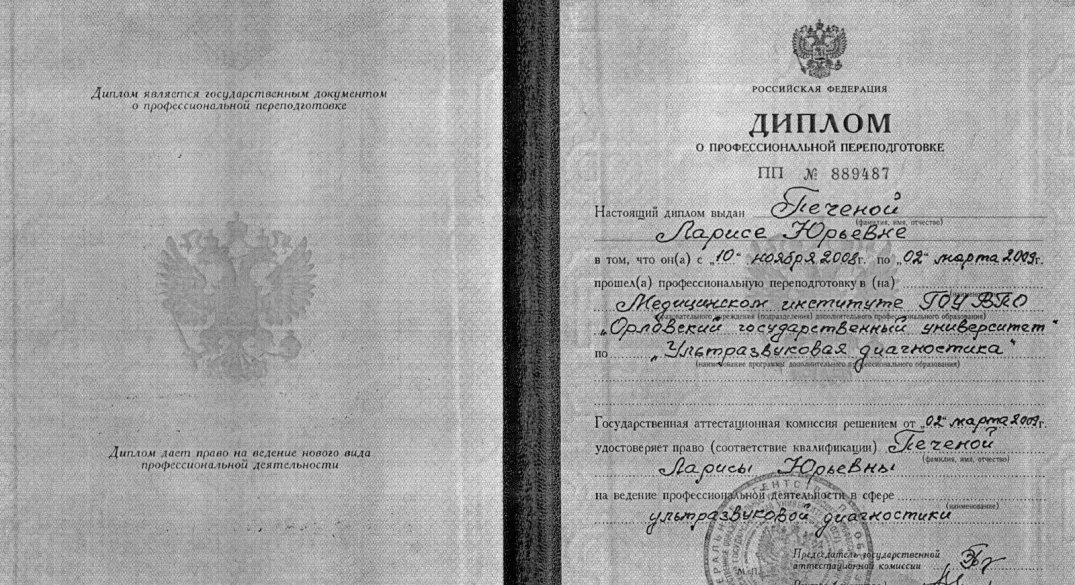 Диплом является государственным документом
о профессиональной переподготовке
Диплом дает право на ведение нового вида
профессиональной деятельности
РОССИЙСКАЯ ФЕДЕРАЦИЯ
ДИПЛОМ
О ПРОФЕССИОНАЛЬНОЙ ПЕРЕПОДГОТОВКЕ
ПП № 889487
Настоящий диплом выдан Печеной
(фамилия, имя, отчество)
Ларисе Юрьевне
в том, что он(а) с „10“ ноября 2008г. по „02“ марта 2009г.
прошел(а) профессиональную переподготовку в (на)
Медицинском институте ГОУ ВПО
(подразделения) дополнительного профессионального образования)
„Орловский государственный университет“
по „Ультразвуковая диагностика“
(наименование программы дополнительного профессионального образования)
Государственная аттестационная комиссия решением от „02“ марта 2009г.
удостоверяет право (соответствие квалификации) Печеной
(фамилия, имя, отчество)
Ларисы Юрьевны
на ведение профессиональной деятельности в сфере
(наименование)
ультразвуковой диагностики
Председатель государственной
аттестационной комиссии
М.П.